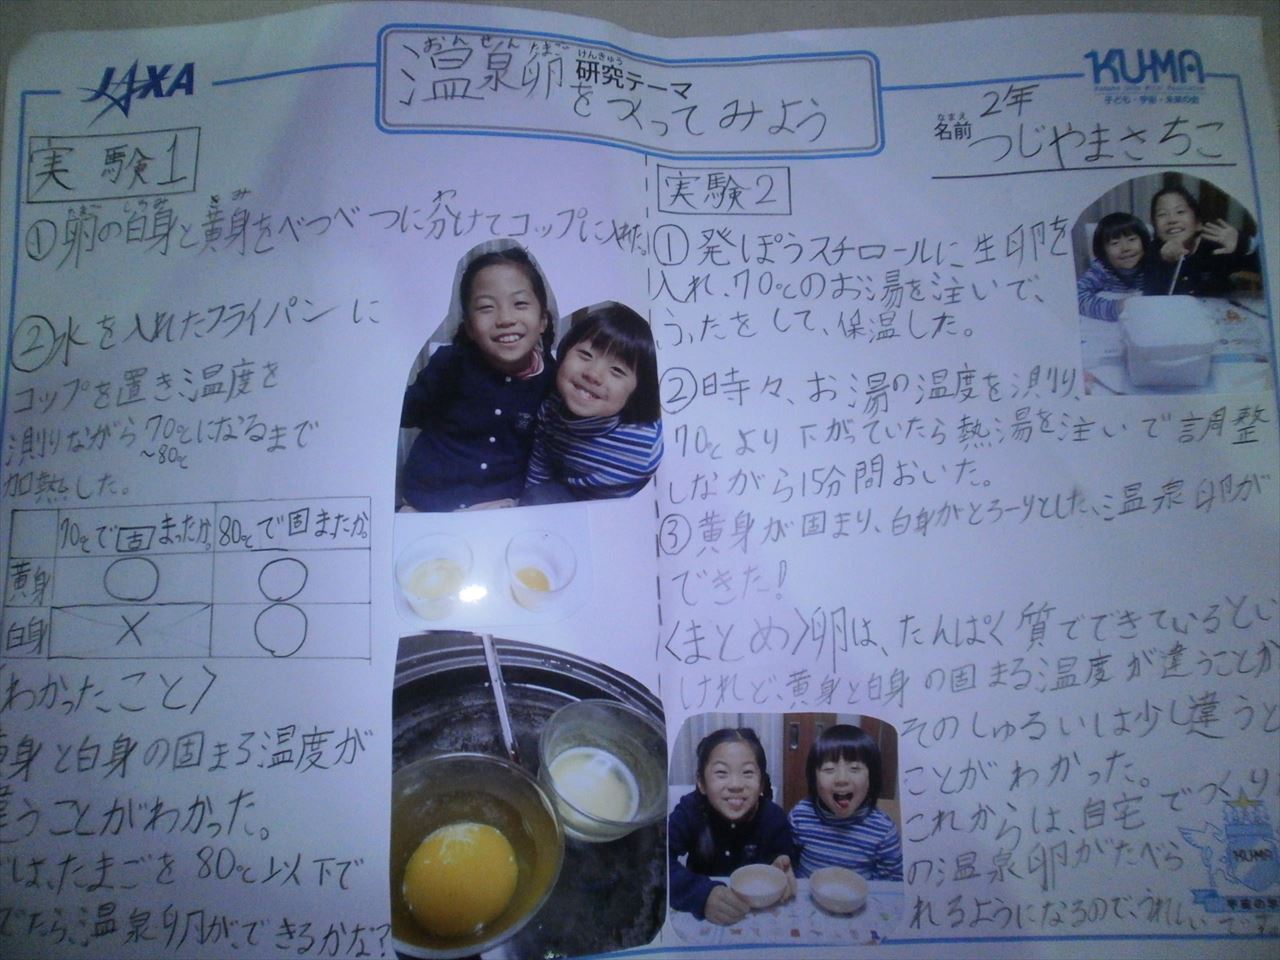 JAXA
おんせん たまご
温泉卵
けんきゅう
研究テーマ
をつくってみよう
KU-MA
子ども・宇宙・未来の会
2年
なまえ
名前 つじやまさちこ
実験1
たまご しろみ きみ わ
①卵の白身と黄身をべつべつに分けてコップに入れた。
②水を入れたフライパンに
コップを置き、温度を
測りながら70℃になるまで
~80℃
加熱した。
70℃で固まったか。 80℃で固またか。
黄身 ○ ○
白身 × ○
わかったこと〉
黄身と白身の固まる温度が
違うことがわかった。
は、たまごを80℃以下で
でたら、温泉卵が、できるかな?
実験2
①発ぽうスチロールに生卵を
入れ、70℃のお湯を注いで、
ふたをして、保温した。
②時々、お湯の温度を測り、
70℃より下がっていたら熱湯を注いで調整
しながら15分間おいた。
③黄身が固まり、白身がとろーりとした、温泉卵が
できた!
〈まとめ〉卵は、たんぱく質でできているとい
けれど、黄身と白身の固まる温度が違うことか
そのしゅるいは少し違うと
ことがわかった。
これからは、自宅でつくり
の温泉卵がたべら
れるようになるので、うれしいです
KUMA
宇宙の学